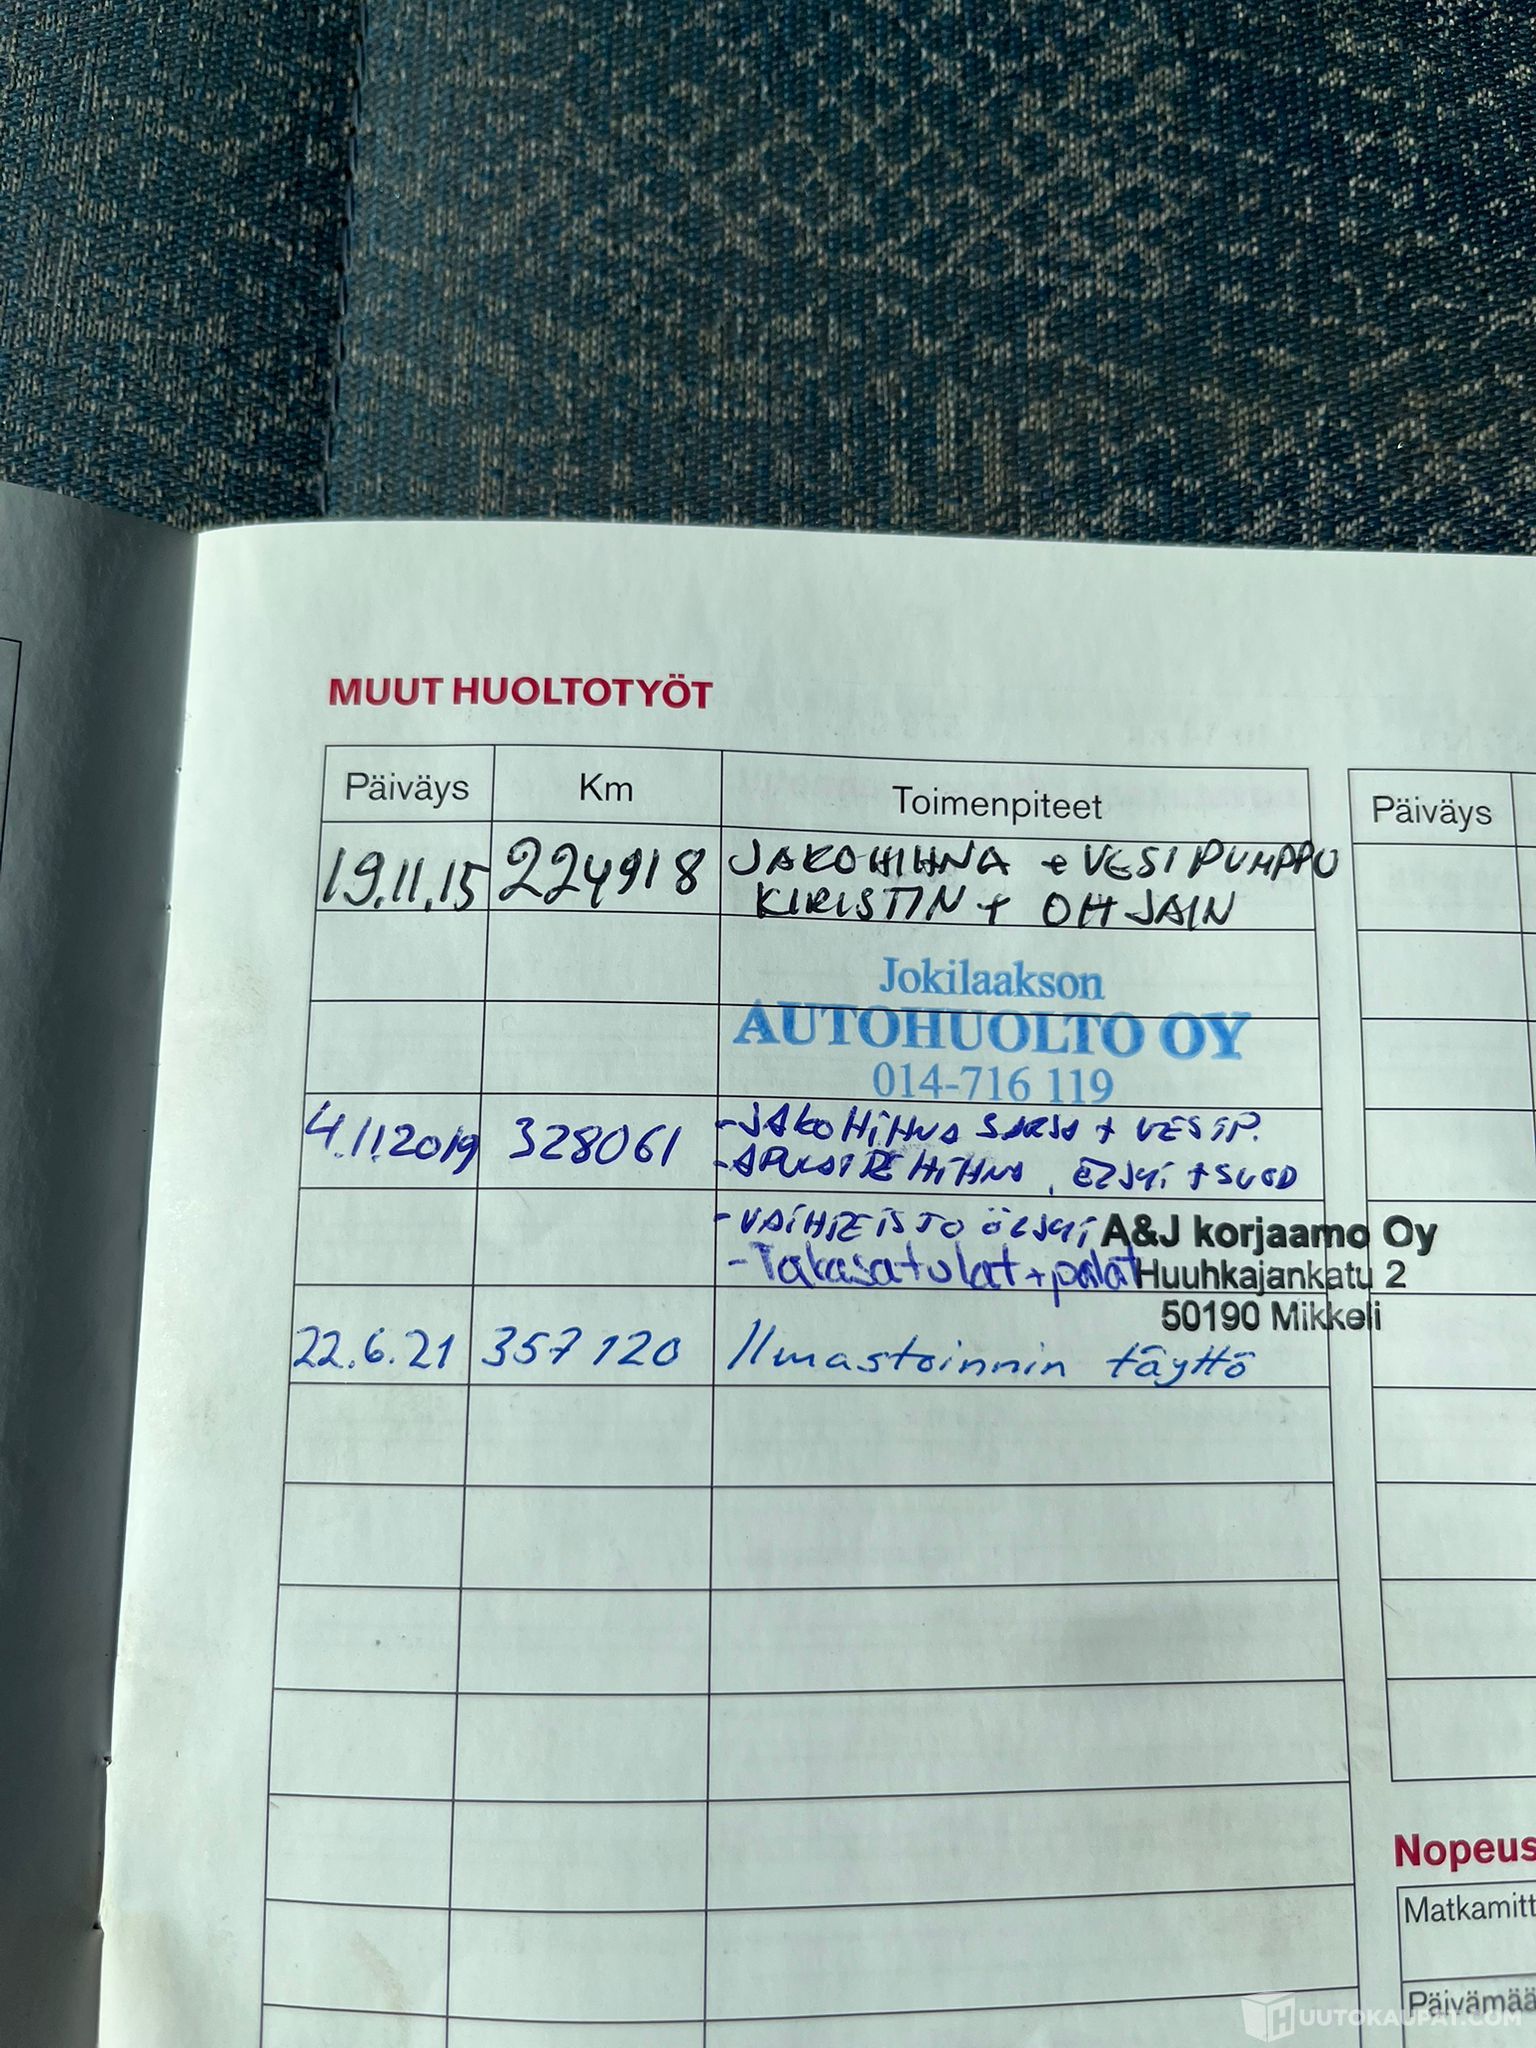 MUUT HUOLTOTYÖT
Päiväys Km Toimenpiteet
19.11.15 224918 JAKOHIHNA + VESIPUMPPU
KIRISTIN + OHJAIN
Jokilaakson
AUTOHUOLTO OY
014-716 119
4.11.2019 328061 - JAKOHIHNA SARJA + VESIP.
- APULAITEHIHNA, ÖLJYI + SUOD
- VAIHTEISTO ÖLJYI
- Takasatulat + palat
A&J korjaamo Oy
Huuhkajankatu 2
50190 Mikkeli
22.6.21 357120 Ilmastoinnin täyttö
Päiväys
Nopeus
Matkamitt
Päivämää
HUUTOKAUPAT.COM